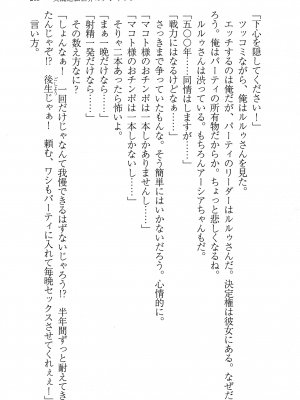 「下心を隠してください！」
ツッコミながら、俺はルルゥさんを見た。
エッチするのは俺だが、パーティのリーダーはルルゥさんだ。決定権は彼女にある。なぜだ
ろう。俺はパーティの所有物だからか。ちょっと悲しくなるね。
ルルゥさんは渋っている。もちろんアーシアちゃんもだ。
「五〇〇年……同情はしますが……」
「戦力にはなるけどなぁ……」
さっきまで争っていたもんなぁ。そう簡単にはいかないだろう。心情的に。
「マコト様のおチンポは一本しかありませんし……」
「マコト様のおチンポは一本しかないし……」
そりゃ二本あったら怖いよ。
「まぁ一晩だけなら……」
「射精一発だけなら……」
その数え方なに？
「しょんなぁ！　一回だけじゃなんて我慢できるはずないじゃろう!?　半年間ずっと耐えてき
たんじゃぞ!?　後生じゃぁ！　頼む、ワシもパーティに入れて毎晩セックスさせてくれぇぇ！」
言い方。